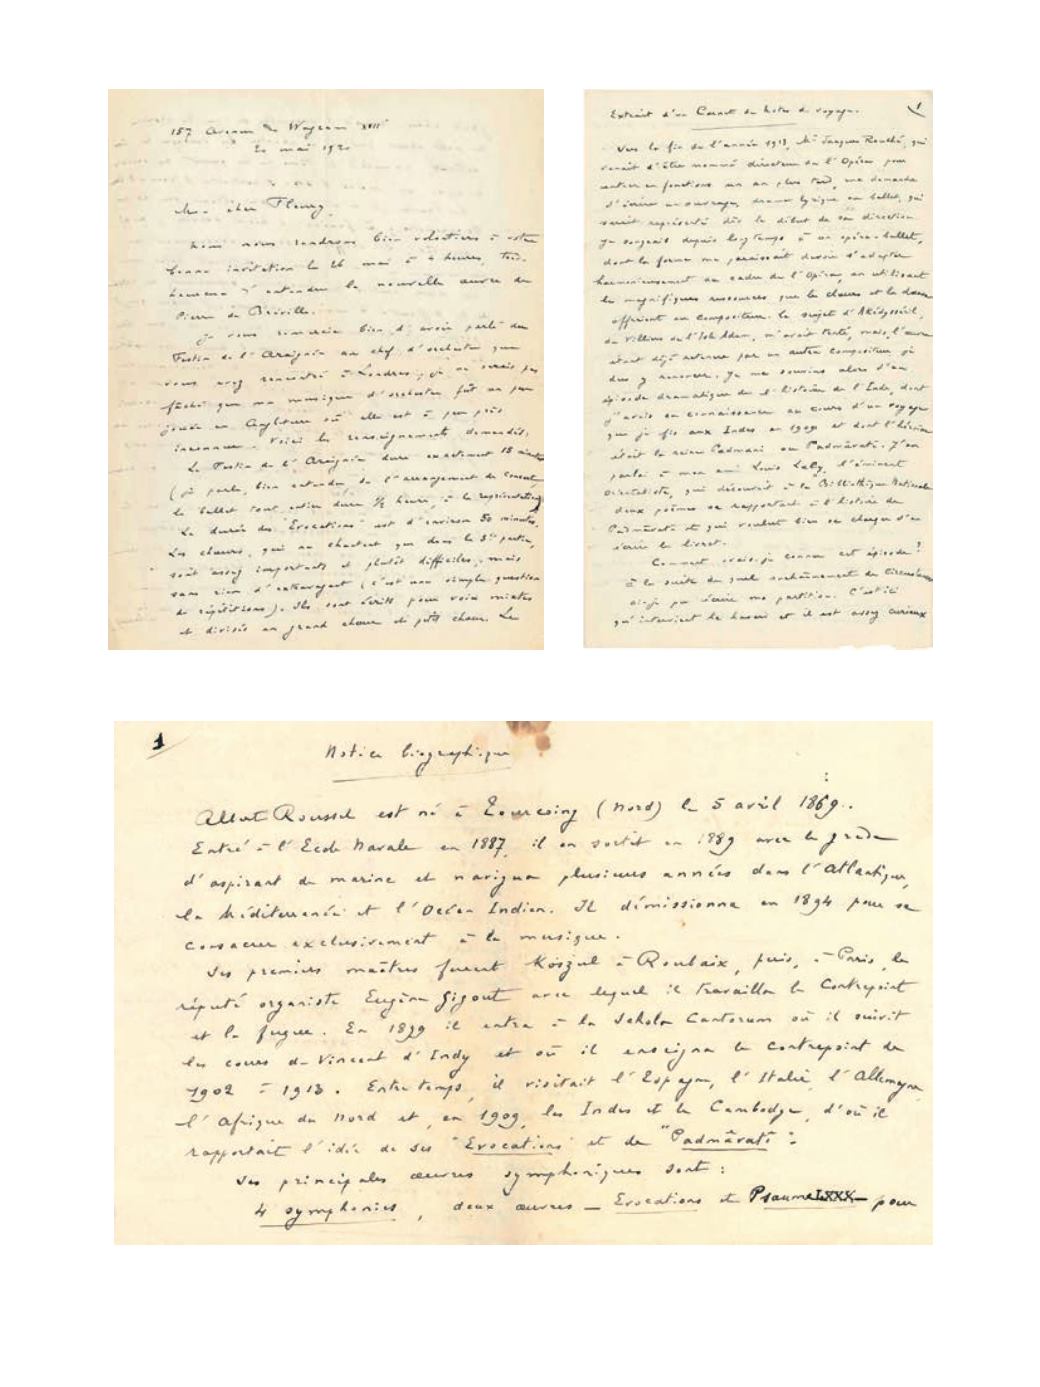 157 Avenue de Wagram XVIIe
20 mai 1920
Mon cher Fleury,
Nous nous rendrons bien volontiers à votre
bonne invitation le 26 mai à 4 heures, très
heureux d'entendre la nouvelle œuvre de
Pierre de Bréville.
Je vous remercie bien d'avoir parlé du
Festin de l'Araignée au chef d'orchestre que
vous avez rencontré à Londres; je ne serais pas
fâché que ma musique d'orchestre fût un peu
jouée en Angleterre où elle est à peu près
inconnue. Voici les renseignements demandés.
Le Festin de l'Araignée dure exactement 18 minutes
(je parle, bien entendu de l'arrangement de concert,
le ballet tout entier dure 1/2 heure, à la représentation)
La durée des "Evocations" est d'environ 50 minutes.
Les chœurs, qui ne chantent que dans la 3e partie,
sont assez importants et plutôt difficiles, mais
sans rien d'extravagant (c'est une simple question
de répétitions). Ils sont écrits pour voix mixtes
et divisés en grand chœur et petit chœur. Le
Extrait d'un Carnet de Notes de voyage.
1
Vers la fin de l'année 1913, Mr Jacques Rouché, qui
venait d'être nommé directeur de l'Opéra pour
entrer en fonctions un an plus tard, me demanda
d'écrire un ouvrage, drame lyrique ou ballet, qui
serait représenté dès le début de sa direction
Je songeais depuis longtemps à un opéra-ballet,
dont la forme me paraissait devoir s'adapter
harmonieusement au cadre de l'Opéra, en utilisant
les magnifiques ressources que les chœurs et la danse
offraient au compositeur. Le sujet d'Akëdysséril,
de Villiers de l'Isle Adam, m'avait tenté, mais, l'œuvre
étant déjà retenue par un autre compositeur je
dus y renoncer. Je me souvins alors d'un
épisode dramatique de l'histoire de l'Inde, dont
j'avais eu connaissance au cours d'un voyage
que je fis aux Indes en 1909 et dont l'héroïne
était la reine Padmani ou Padmâvatî. J'en
parlai à mon ami Louis Laloy, l'éminent
orientaliste, qui découvrit à la Bibliothèque Nationale
deux poèmes se rapportant à l'histoire de
Padmâvatî et qui voulut bien se charger d'en
écrire le livret.
Comment avais-je connu cet épisode?
à la suite de quel enchaînement de circonstances
ai-je pu écrire ma partition. C'est ici
qu'intervient le hasard et il est assez curieux
1
Notice biographique
Albert Roussel est né à Tourcoing (Nord) le 5 avril 1869.
Entré à l'Ecole Navale en 1887, il en sortit en 1889 avec le grade
d'aspirant de marine et navigua plusieurs années dans l'Atlantique,
la Méditerranée et l'Océan Indien. Il démissionna en 1894 pour se
consacrer exclusivement à la musique.
Ses premiers maîtres furent Koszul à Roubaix, puis, à Paris, le
réputé organiste Eugène Gigout avec lequel il travailla le Contrepoint
et la fugue. En 1899 il entra à la Schola Cantorum où il suivit
les cours de Vincent d'Indy et où il enseigna le contrepoint de
1902 à 1913. Entre temps, il visitait l'Espagne, l'Italie, l'Allemagne,
l'Afrique du Nord et, en 1909, les Indes et le Cambodge, d'où il
rapportait l'idée de ses "Evocations" et de "Padmâvatî".
Ses principales œuvres symphoniques sont :
4 symphonies, deux œuvres — Evocations et Psaume LXXX — pour